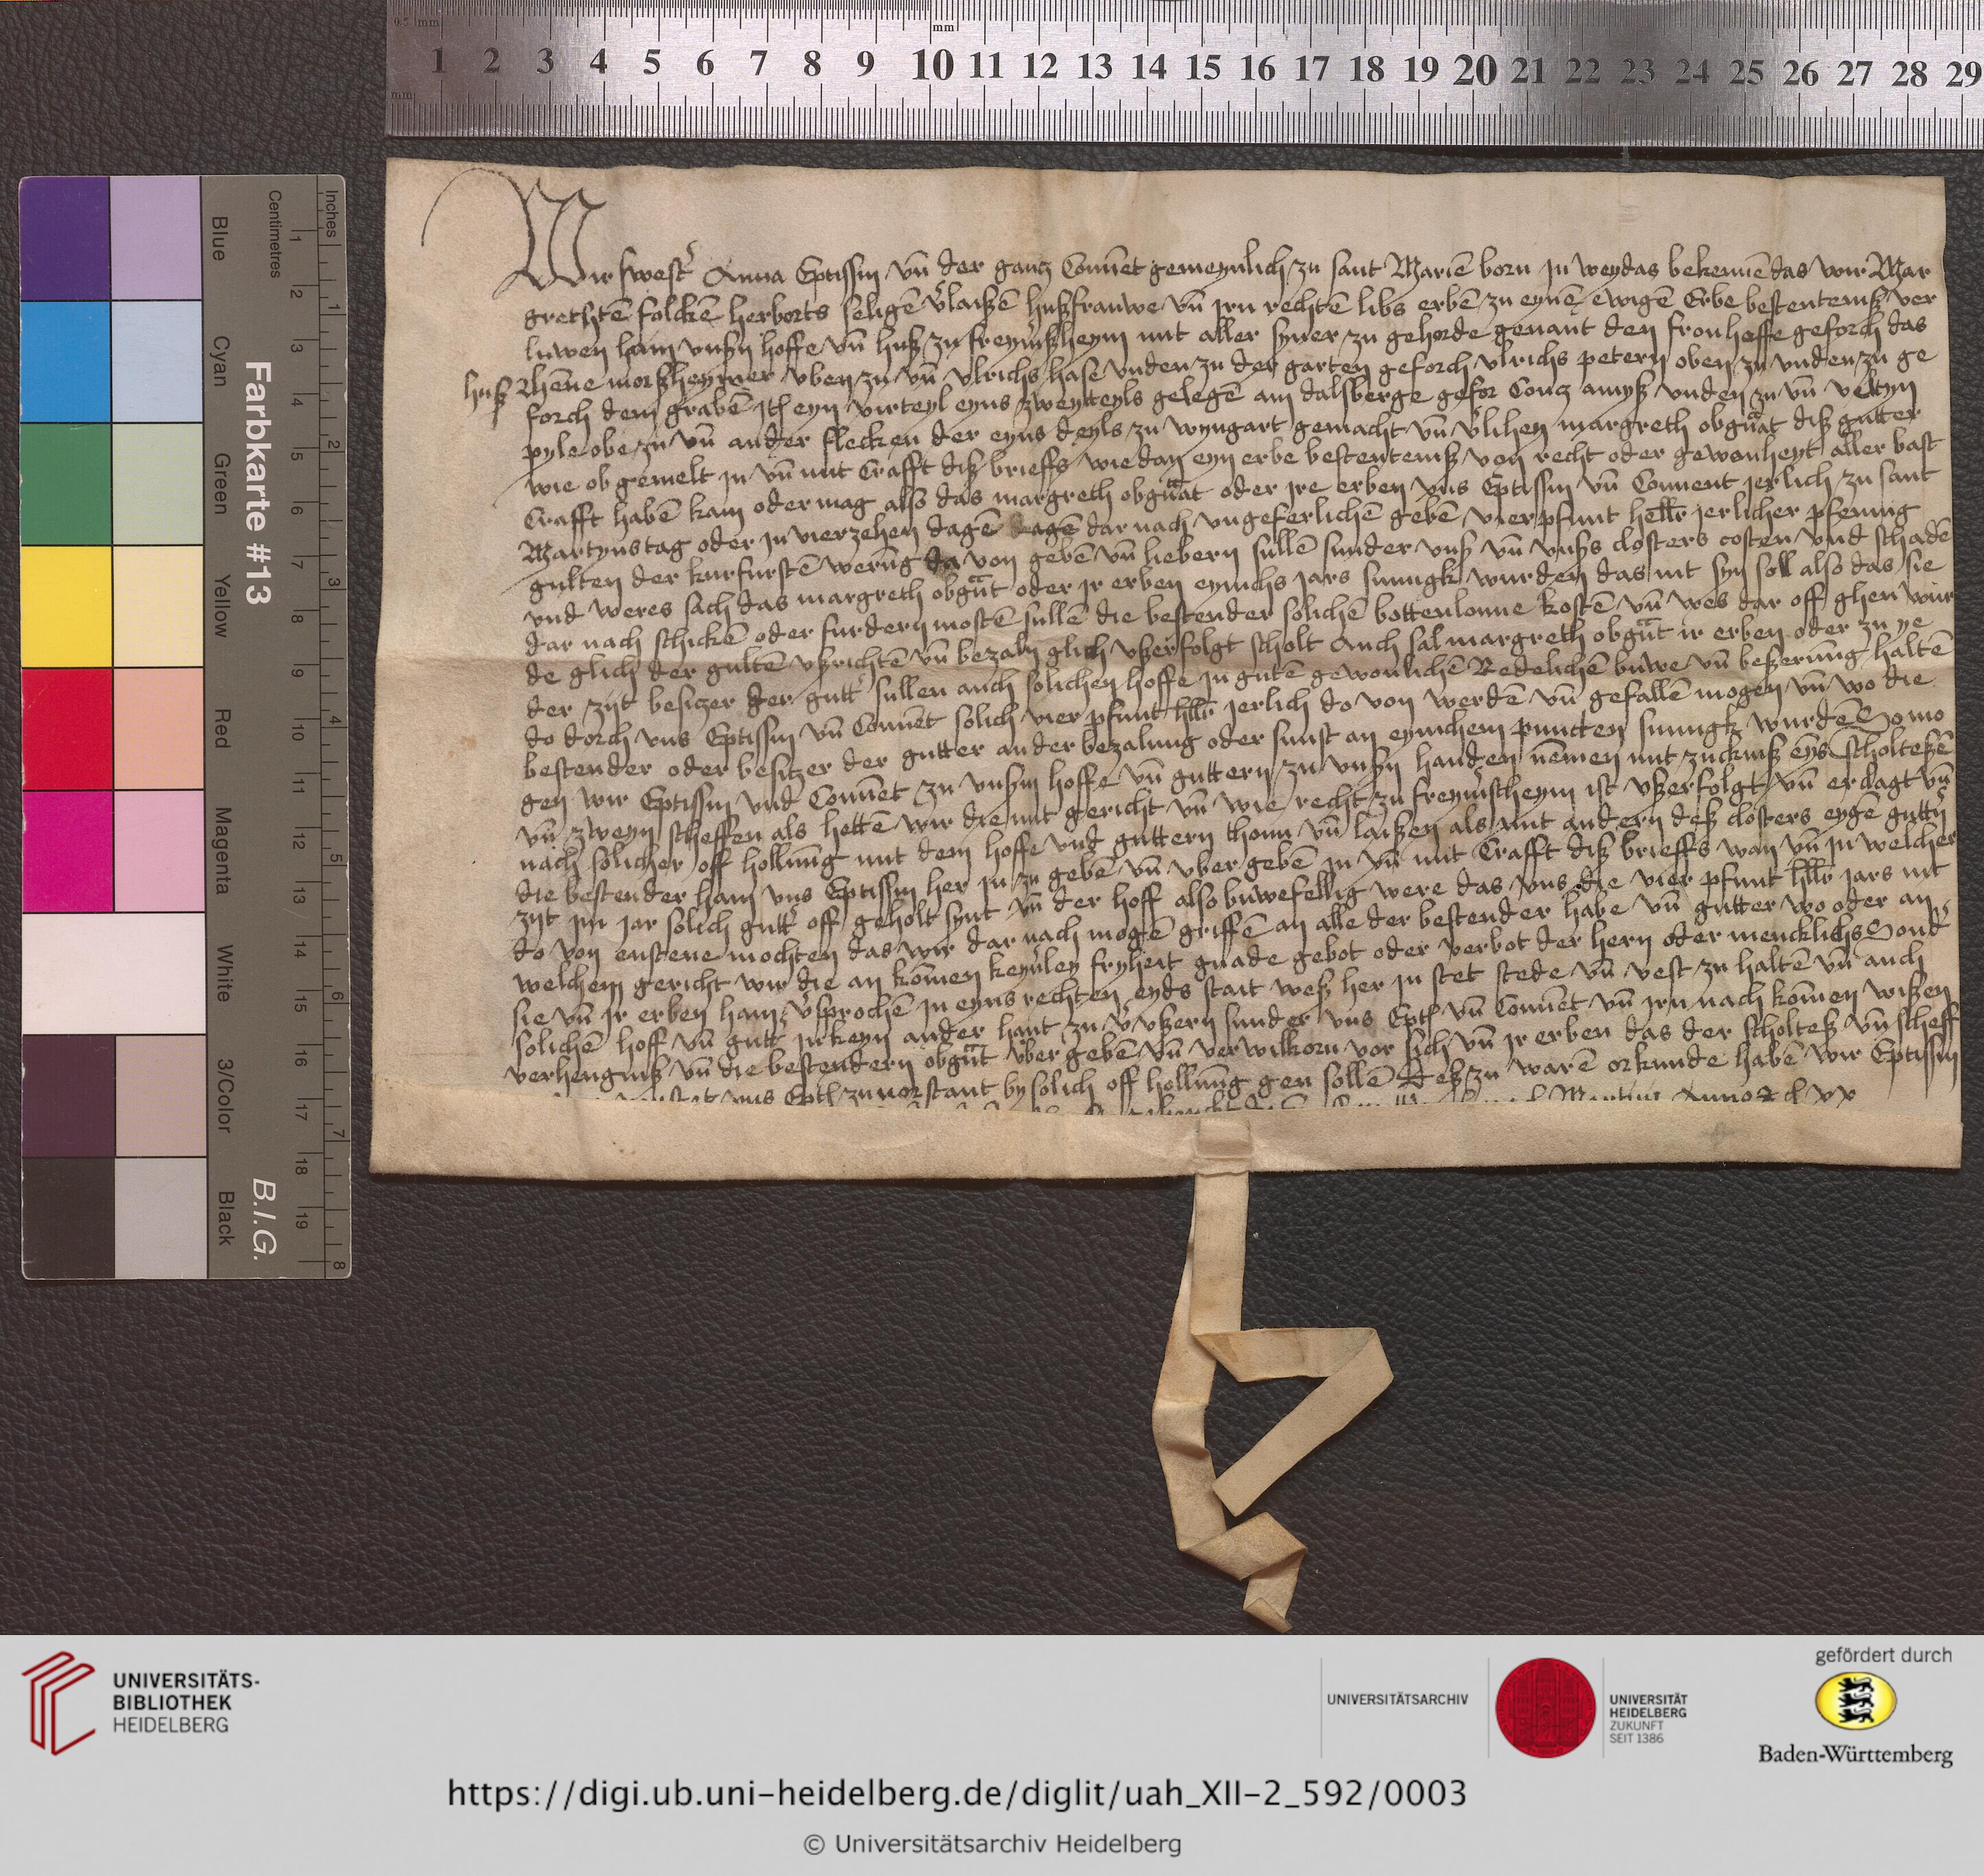 0.5 mm
mm
mm
1 2 3 4 5 6 7 8 9 10 11 12 13 14 15 16 17 18 19 20 21 22 23 24 25 26 27 28 29
Inches
Centimetres
1 2 3 4 5 6 7 8
1 2 3 4 5 6 7 8 9 10 11 12 13 14 15 16 17 18 19
Blue Cyan Green Yellow Red Magenta White 3/Color Black
Farbkarte #13
B.I.G.
Wir swest' Anna Eptissin vn̄ der gantz Conūet gemeynlich zu sant Mariē born in weydas bekennē das wir Mar
grethtē folckē herborts seligē v'laißē hußfrauwe vn̄ jrn rechtē libs erbē zu eynē ewigē Erbe bestentenß ver
luwen han vnßn hoffe vn̄ huß zu freymßheym mit aller syner zu gehorde genant den fronheffe geforch das
huß Rhēne morßheymer oben zu vn̄ vlrichs hase vnden zu der garten geforch vlrichs petern oben zu vnden zu ge
forch dem grabē Jt̄ eyn virteyl eyns zweyteyls gelegē am dalsberge gefor Contz amyß vnden zu vn̄ veltyn
pyle obe zu vn̄ ander flecken der eyns deyls zu wyngart gemacht vn̄ v'lihen margreth obgn̄at diß gutter
wie ob gemelt in vn̄ mit Crafft diß brieffs wie dan eyn erbe bestentenß von recht oder gewonheyt aller bast
Crafft habē kan oder mag also das margreth obgn̄at oder jre erben vns Eptissin vn̄ Conuent jerlich zu sant
Martynstag oder in vierzehen dagē dagē dar nach vngeferlichē gebē vier pfunt hellr̄ jerlicher pfennig
gulten der kurfurstē werūg da von gebē vn̄ liebern sullē sunder vnß vn̄ vnßs closters costen vnd schadē
vnd weres sach das margreth obgn̄at oder jr erben eynichs jars sumigk wurden das nit syn soll also das sie
dar nach schickē oder furdern mostē sullē die bestender solichē bottenlonne kostē vn̄ wes dar off ghen wur
de glich der gultē vßrichtē vn̄ bezaln glich vßerfolgt scholt Auch sal margreth obgn̄at ir erben oder zu ye
der zyt besitzer der gutt' sullen auch solichen hoffe in gutē gewonlichē Redelichē buwe vn̄ beßerūng haltē
do dorch vns Eptissin vn̄ Conūet solich vier pfunt hllr jerlich do von werdē vn̄ gefallē mogen vn̄ wo die
bestender oder besitzer der gutter an der bezalung oder sunst an eynichem puncten sumigk wurdē So mo
gen wir Eptissin vnd Conūet zu vnßm hoffe vn̄ guttern zu vnßn handen nēmen mit zucknß eyns scholteßē
vn̄ zweyn scheffen als hettē wir die mit gericht vn̄ wie recht zu freymßheym ist vßerfolgt vn̄ erdagt vn̄
nach solicher off hollūng mit dem hoffe vnd guttern thonn vn̄ laißen als mit andern deß closters eygē guttn̄
die bestender han vns Eptissin her in zu gebē vn̄ vber gebē in vn̄ mit Crafft diß brieffs wan vn̄ in welcher
zyt jm jar solich gutt' off geholt synt vn̄ der hoff also buwefellig were das vns die vier pfunt hllr jars nit
do von enstene mochten das wir dar nach mogē griffē an alle der bestender habe vn̄ gutter wo oder an
welchem gericht wir die an kōmen keyn'ley fryheit gnade gebot oder verbot der hern oder mencklichs Sond'
sie vn̄ jr erben han v'sprochē in eyns rechten eyds stait weß her in stet stede vn̄ vest zu haltē vn̄ auch
solichē hoff vn̄ gutt' in keyn ander hant zu v'ußern sunder vns Ept̄ vn̄ Conūet vn̄ jrn nach kōmen wißen
verhengniß vn̄ die bestendern obgn̄at vber gebē vn̄ verwilkorn vor sich vn̄ jr erben das der scholteß vn̄ scheff
vns Ept̄ zuuorstant by solich off hollūng gen sollē Deß zu warē orkunde habē wir Eptissin
Martini Anno
UNIVERSITÄTS-
BIBLIOTHEK
HEIDELBERG
UNIVERSITÄTSARCHIV
UNIVERSITÄT
HEIDELBERG
ZUKUNFT
SEIT 1386
gefördert durch
Baden-Württemberg
https://digi.ub.uni-heidelberg.de/diglit/uah_XII-2_592/0003
© Universitätsarchiv Heidelberg